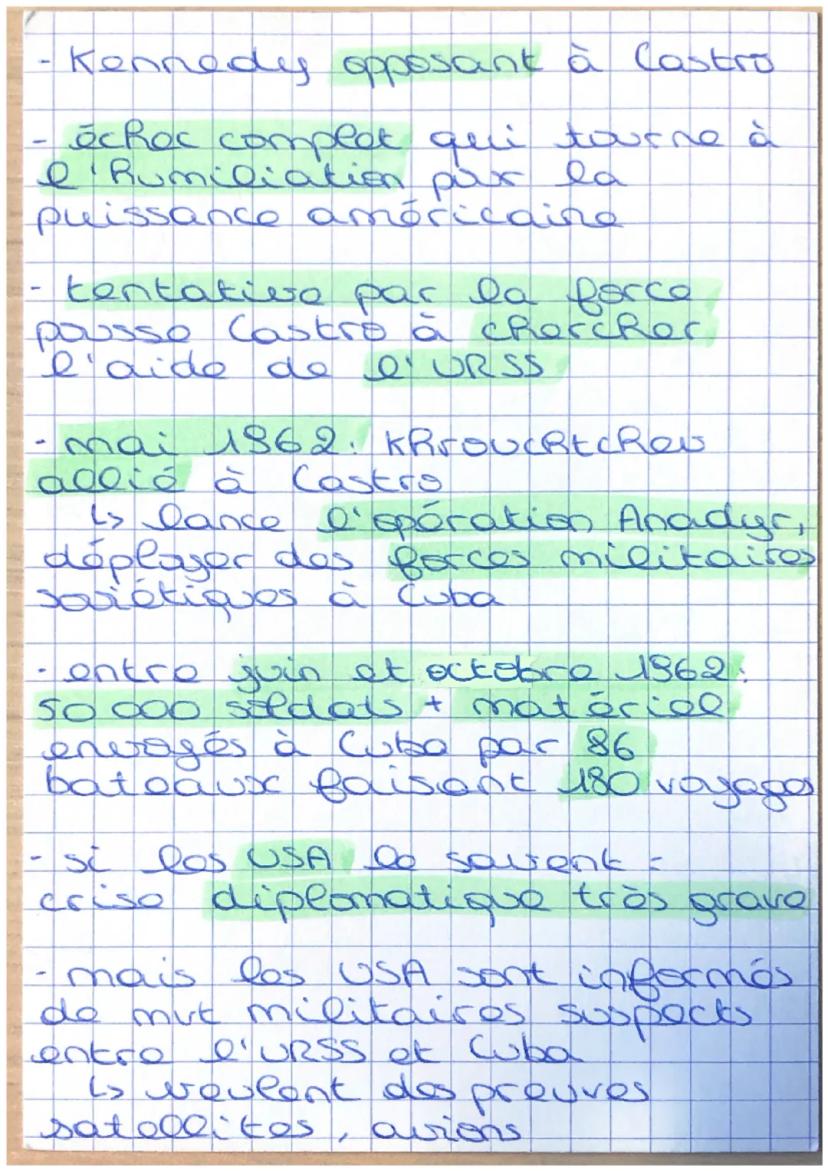 - Kennedy opposant à Castro
- échec complet qui tourne à
l'humiliation par la
puissance américaine
- tentative par la force
pousse Castro à chercher
l'aide de l'URSS
- mai 1962: Khrouchtchev
allié à Castro
↳ lance l'opération Anadyr,
déployer des forces militaires
soviétiques à Cuba
- entre juin et octobre 1962:
50 000 soldats + matériel
envoyés à Cuba par 86
bateaux faisant 180 voyages
- si les USA le savent =
crise diplomatique très grave
- mais les USA sont informés
de mvt militaires suspects
entre l'URSS et Cuba
↳ veulent des preuves
satellites, avions